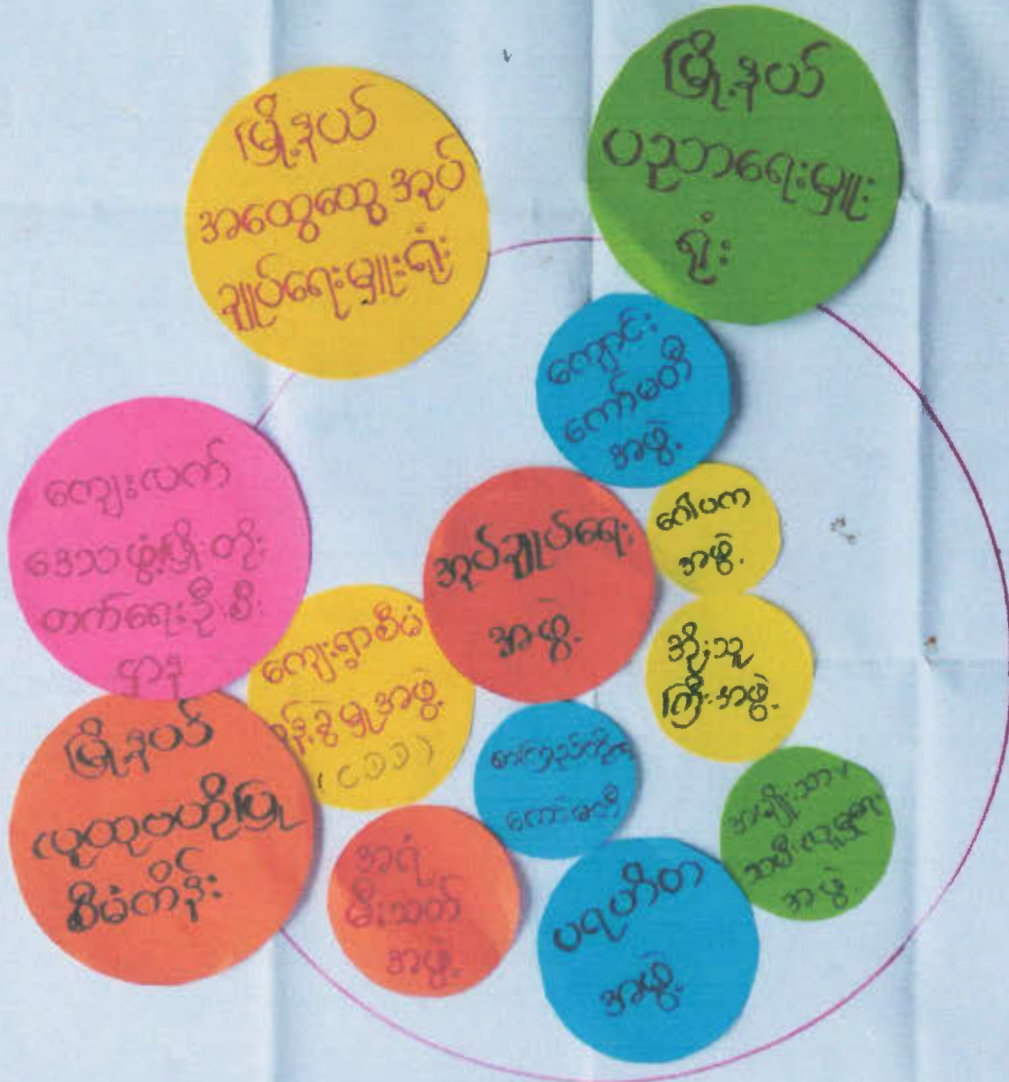 မြို့နယ်
အထွေထွေအုပ်
ချုပ်ရေးမှူးရုံး
မြို့နယ်
ပညာရေးမှူး
ရုံး
ကျောင်း
ကော်မတီ
အဖွဲ့
ကျေးလက်
ဒေသဖွံ့ဖြိုးတိုး
တက်ရေးဦးစီး
ဌာန
အုပ်ချုပ်ရေး
အဖွဲ့
ဂေါပက
အဖွဲ့
ကျေးရွာစီမံ
ခန့်ခွဲမှုအဖွဲ့
အိုးသူ
ကြီးအဖွဲ့
မြို့နယ်
လူထုဗဟိုပြု
စီမံကိန်း
ကော်မတီ
အဖွဲ့
အရံ
မီးသတ်
အဖွဲ့
ပရဟိတ
အဖွဲ့